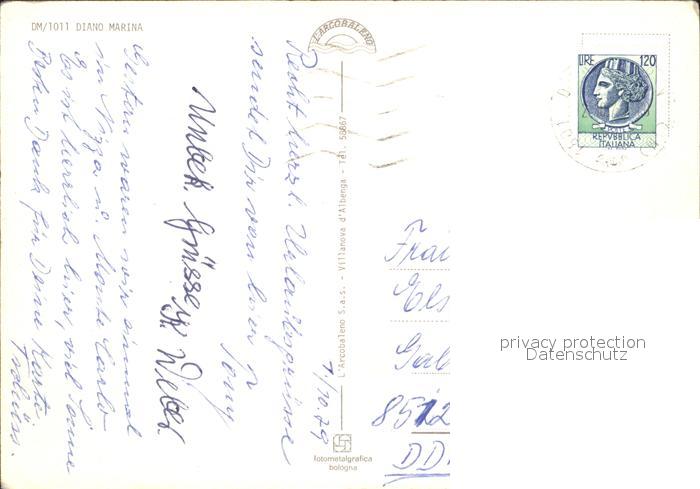 DM/1011 DIANO MARINA
L'ARCOBALENO
LIRE 120
REPVBBLICA
ITALIANA
7/10.79
Recht herzl. Urlaubsgrüsse
sendet Dir von hier
Tony
Unbek. Grüsse Weber
Gestern waren wir einmal
in Nizza u. Monte Carlo
Es ist herrlich hier, viel Sonne
Dank für Deine Karte
Tschüss.
L'Arcobaleno S.a.s. - Villanova d'Albenga - Tel. 58667
fotometalgrafica
bologna
Els
Gab
8512
DD
privacy protection
Datenschutz